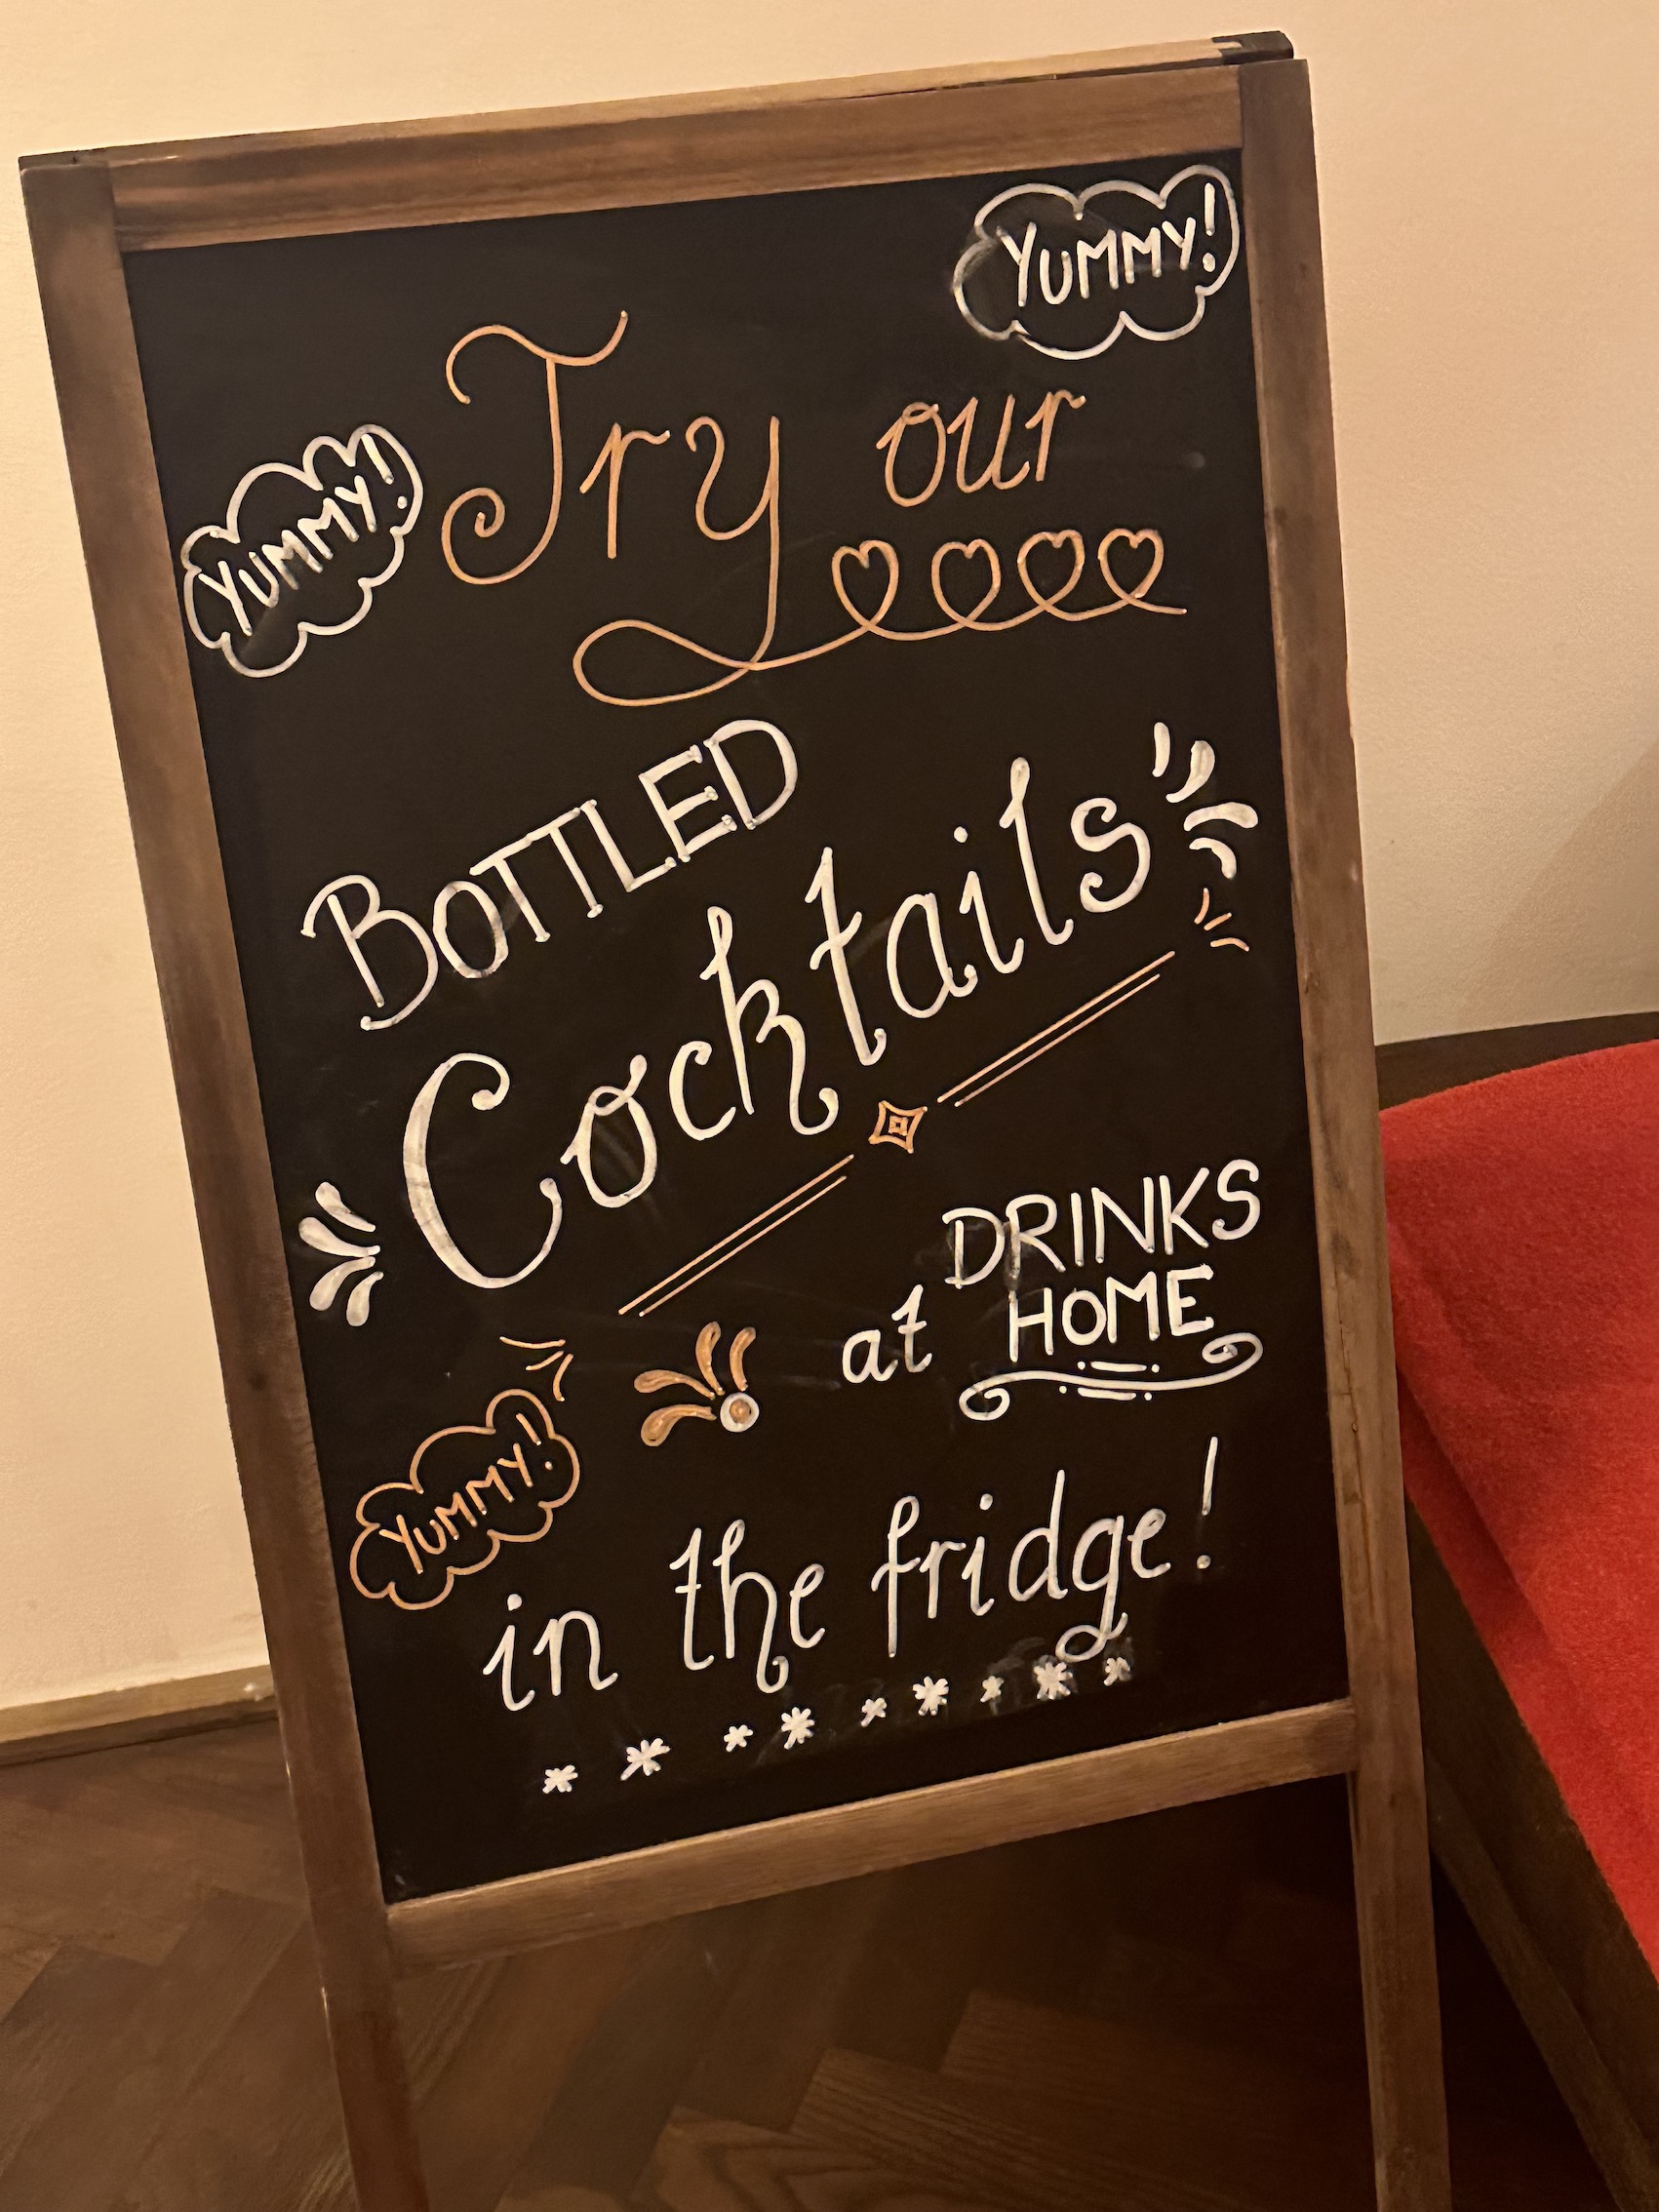 YUMMY!
Try our
YUMMY!
BOTTLED
Cocktails
at DRINKS
HOME
YUMMY!
in the fridge!